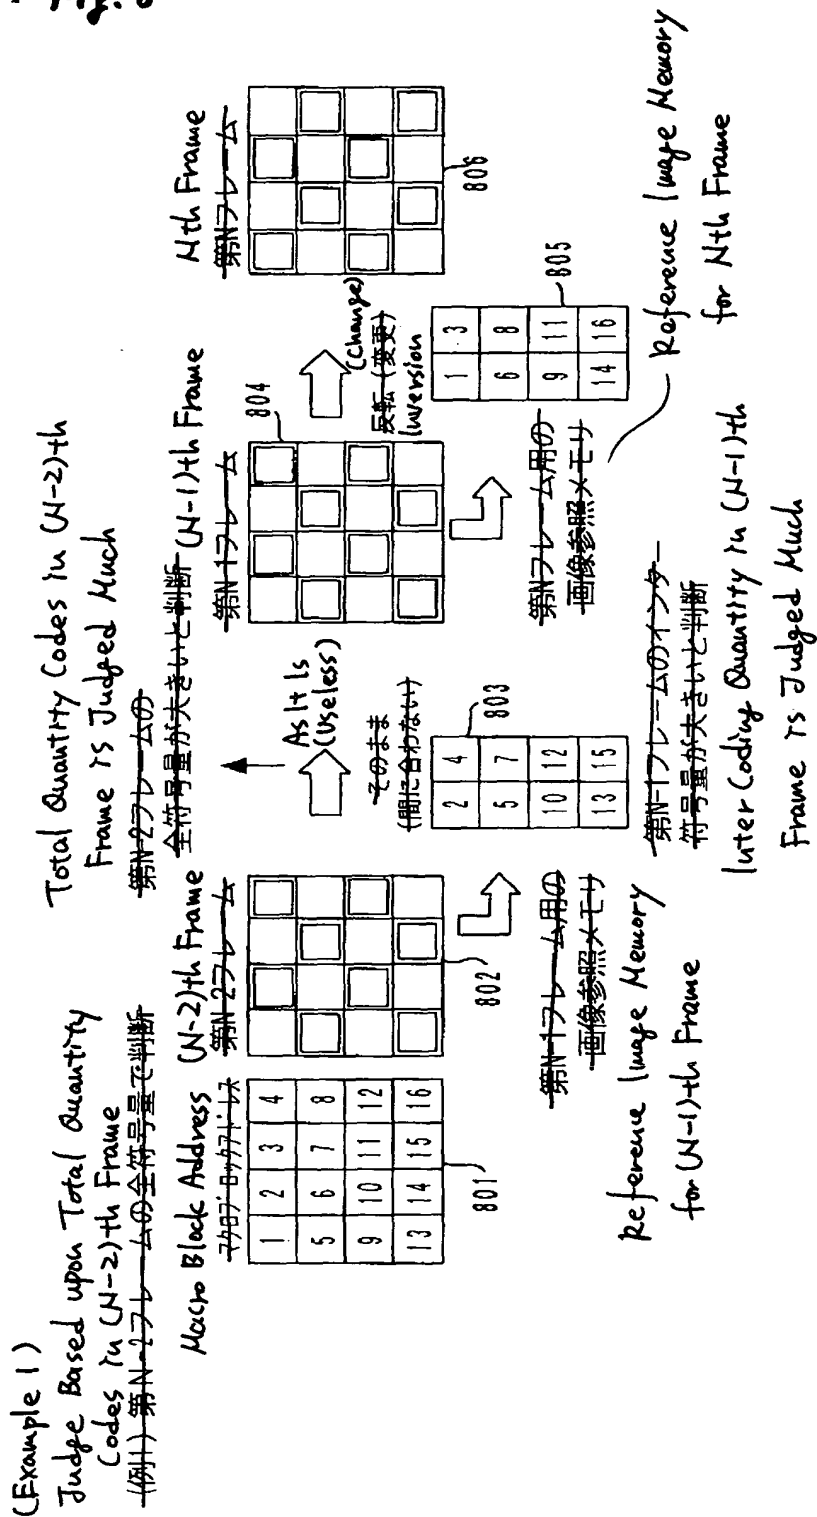 (Example 1)
Judge Based upon Total Quantity
Codes in (N-2)th Frame
(例1) 第N-2フレームの全符号量で判断
Macro Block Address
マクロブロックアドレス
1 2 3 4
5 6 7 8
9 10 11 12
13 14 15 16
801
(N-2)th Frame
第N-2フレーム
802
第N-1フレーム用の
画像参照メモリ
Reference Image Memory
for (N-1)th Frame
Total Quantity Codes in (N-2)th
Frame is Judged Much
第N-2フレームの
全符号量が大きいと判断
As It Is
(Useless)
そのまま
(間に合わない)
2 4
5 7
10 12
13 15
803
第N-1フレームのインター
符号量が大きいと判断
Inter Coding Quantity in (N-1)th
Frame is Judged Much
(N-1)th Frame
第N-1フレーム
804
(Change)
反転(変更)
Inversion
第Nフレーム用の
画像参照メモリ
1 3
6 8
9 11
14 16
805
Reference Image Memory
for Nth Frame
Nth Frame
第Nフレーム
806